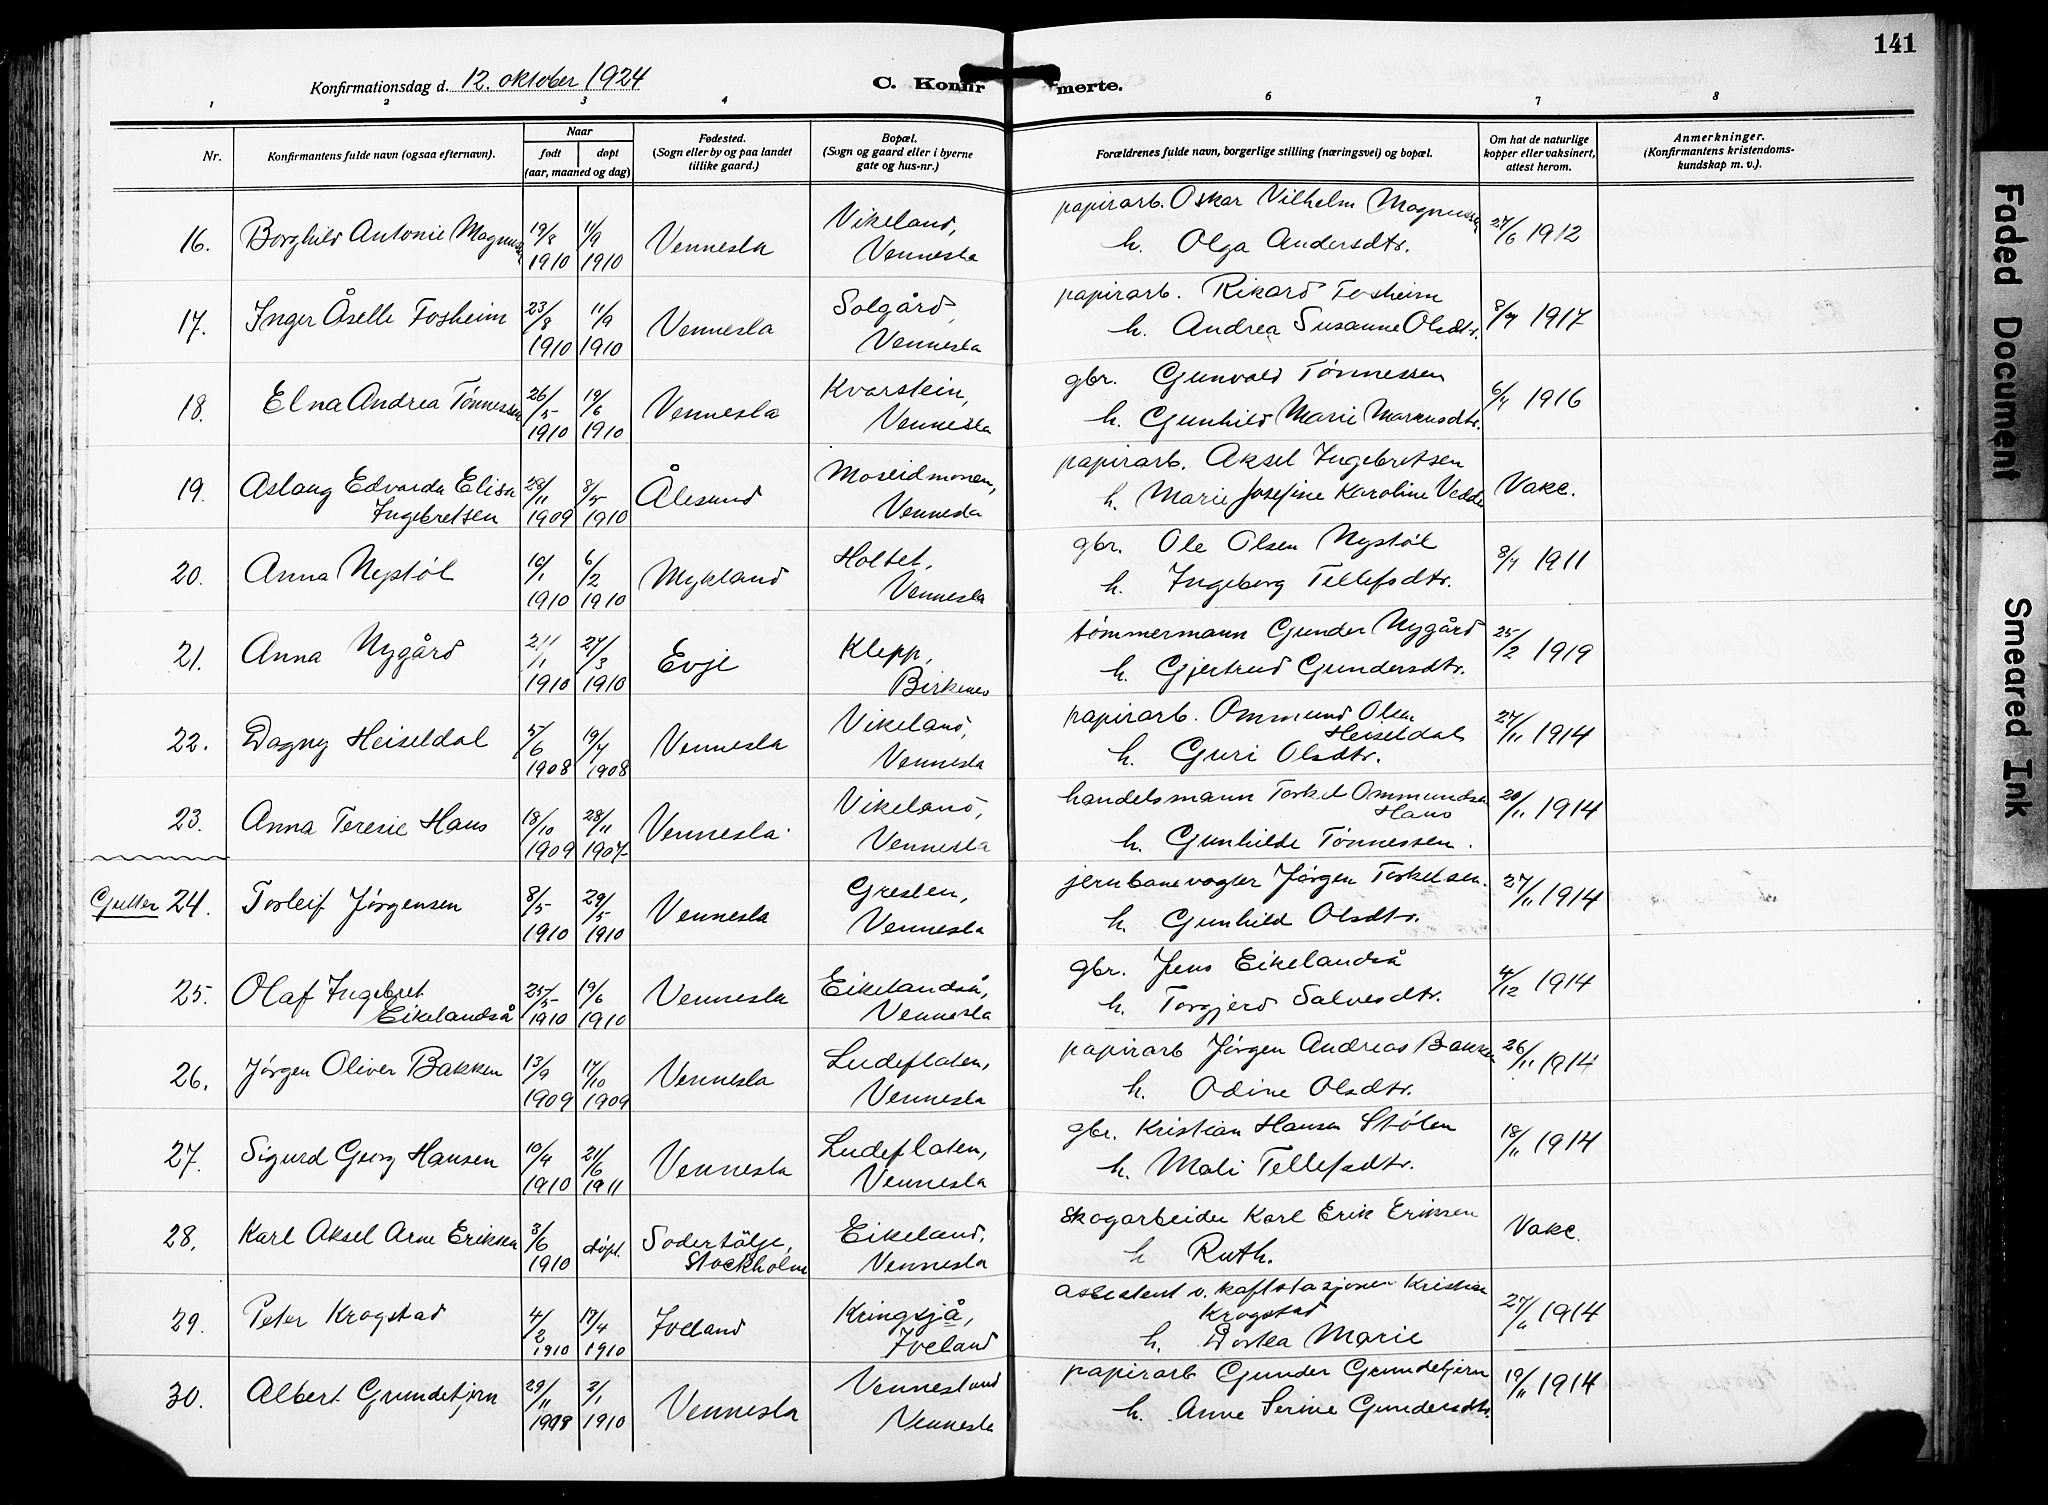 141
Konfirmationsdag d. 12. oktober 1924
C. Konfir merte.
1 2 3 4 6 7 8
Nr. Konfirmantens fulde navn (ogsaa efternavn). Naar født døpt (aar, maaned og dag) Fødested. (Sogn eller by og paa landet tillike gaard.) Bopæl. (Sogn og gaard eller i byerne gate og hus-nr.) Forældrenes fulde navn, borgerlige stilling (næringsvei) og bopæl. Om hat de naturlige kopper eller vaksinert, attest herom. Anmerkninger. (Konfirmantens kristendoms-kundskap m. v.).
16. Borghild Antonie Magnussen 19/8 1910 11/9 1910 Vennesla Vikeland, Vennesla papirarb. Oskar Vilhelm Magnussen 27/6 1912
h. Olga Andersdtr.
17. Inger Åselle Fosheim 23/8 1910 11/9 1910 Vennesla Solgård, Vennesla papirarb. Rikard Fosheim 8/7 1917
h. Andrea Susanne Olsdtr.
18. Elna Andrea Tønnessen 26/5 1910 19/6 1910 Vennesla Kvarstein, Vennesla gbr. Gunvald Tønnessen 6/7 1916
h. Gunhild Marie Markusdtr.
19. Aslaug Edvarda Elisa Ingebretsen 28/11 1909 8/5 1910 Ålesund Moseidmonen, Vennesla papirarb. Aksel Ingebretsen Vakc.
h. Marie Josefine Karoline Vedde
20. Anna Nystøl 16/1 1910 6/2 1910 Mykland Holtet, Vennesla gbr. Ole Olsen Nystøl 8/7 1911
h. Ingeborg Tellefsdtr.
21. Anna Nygård 21/1 1910 27/3 1910 Evje Klepp, Birkenes tømmermann Gunder Nygård 25/2 1919
h. Gjertrud Gundersdtr.
22. Dagny Heiseldal 5/6 1908 19/7 1908 Vennesla Vikeland, Vennesla papirarb. Ommund Olsen Heiseldal 27/11 1914
h. Guri Olsdtr.
23. Anna Teresie Haus 18/10 1909 28/11 1907 Vennesla Vikeland, Vennesla handelsmann Torkel Ommundsen Haus 20/11 1914
h. Gunhilde Tønnessen.
Gutter 24. Torleif Jørgensen 8/5 1910 29/5 1910 Vennesla Greslen, Vennesla jernbanevogter Jørgen Torkelsen. 27/11 1914
h. Gunhild Olsdtr.
25. Olaf Ingebret Eikelandså 25/5 1910 19/6 1910 Vennesla Eikelandså, Vennesla gbr. Jens Eikelandså 4/12 1914
h. Torgjerd Salvesdtr.
26. Jørgen Oliver Bakken 13/9 1909 17/10 1909 Vennesla Ludeflaten, Vennesla papirarb Jørgen Andreas Bakken 26/11 1914
h. Odine Olsdtr.
27. Sigurd Georg Hansen 10/4 1910 21/6 1911 Vennesla Ludeflaten, Vennesla gbr. Kristian Hansen Stølen 18/11 1914
h. Mali Tellefsdtr.
28. Karl Aksel Arne Eriksen 3/6 1910 døpt. Sodertälje, Stockholm Eikeland, Vennesla Skogarbeider Karl Erik Eriksen Vakc.
h Ruth.
29. Peter Krogstad 4/2 1910 17/4 1910 Iveland Kringsjå, Iveland assistent v. kaftstasjonen Kristian Krogstad 27/11 1914
h. Dortea Marie
30. Albert Grundetjern 29/11 1908 2/1 1910 Vennesla Vennesland Vennesla papirarb Gunder Grundetjern 19/11 1914
h. Anne Serine Gundersdtr.
Faded Document
Smeared Ink